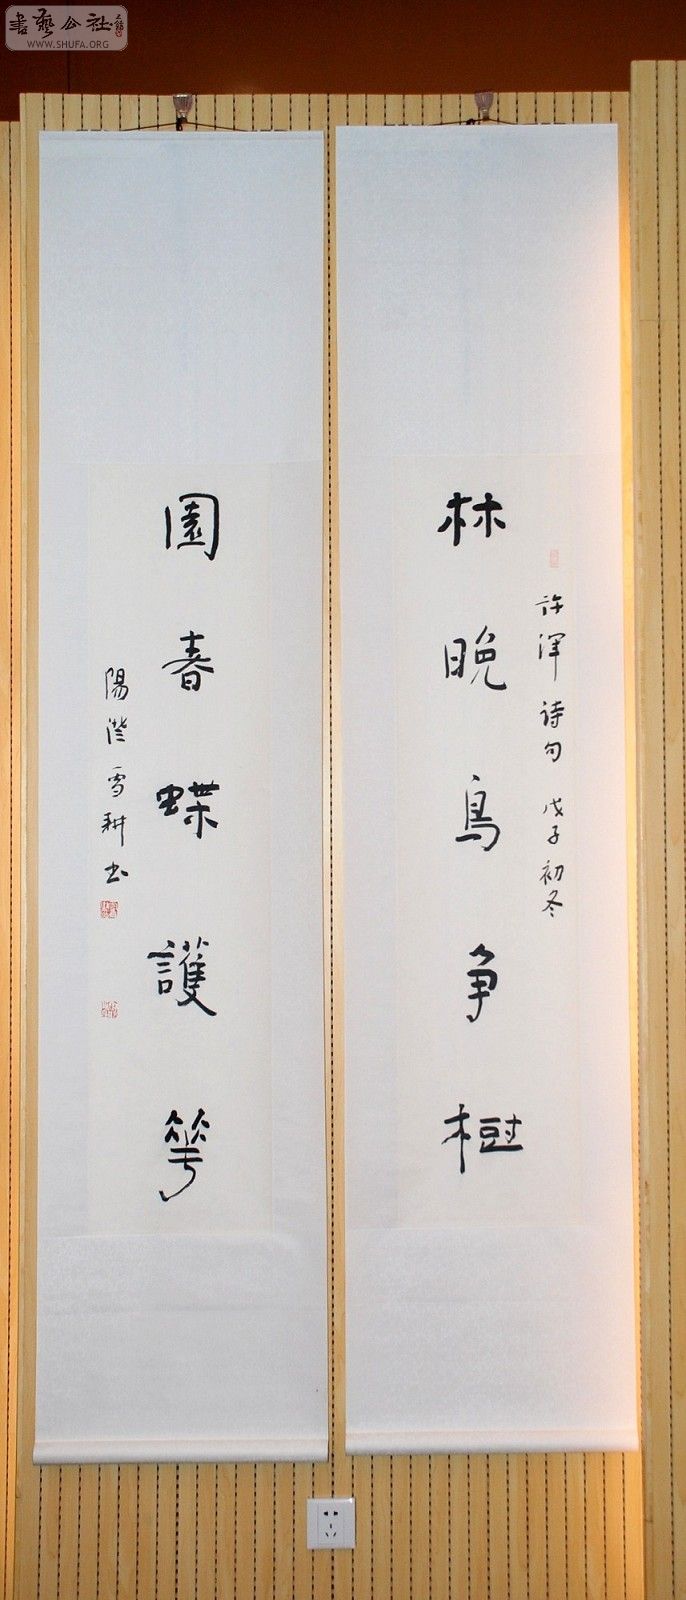 書藝公社
WWW.SHUFA.ORG
林晚鳥争樹
許渾詩句 戊子初冬
園春蝶護花
陽澄雪耕书